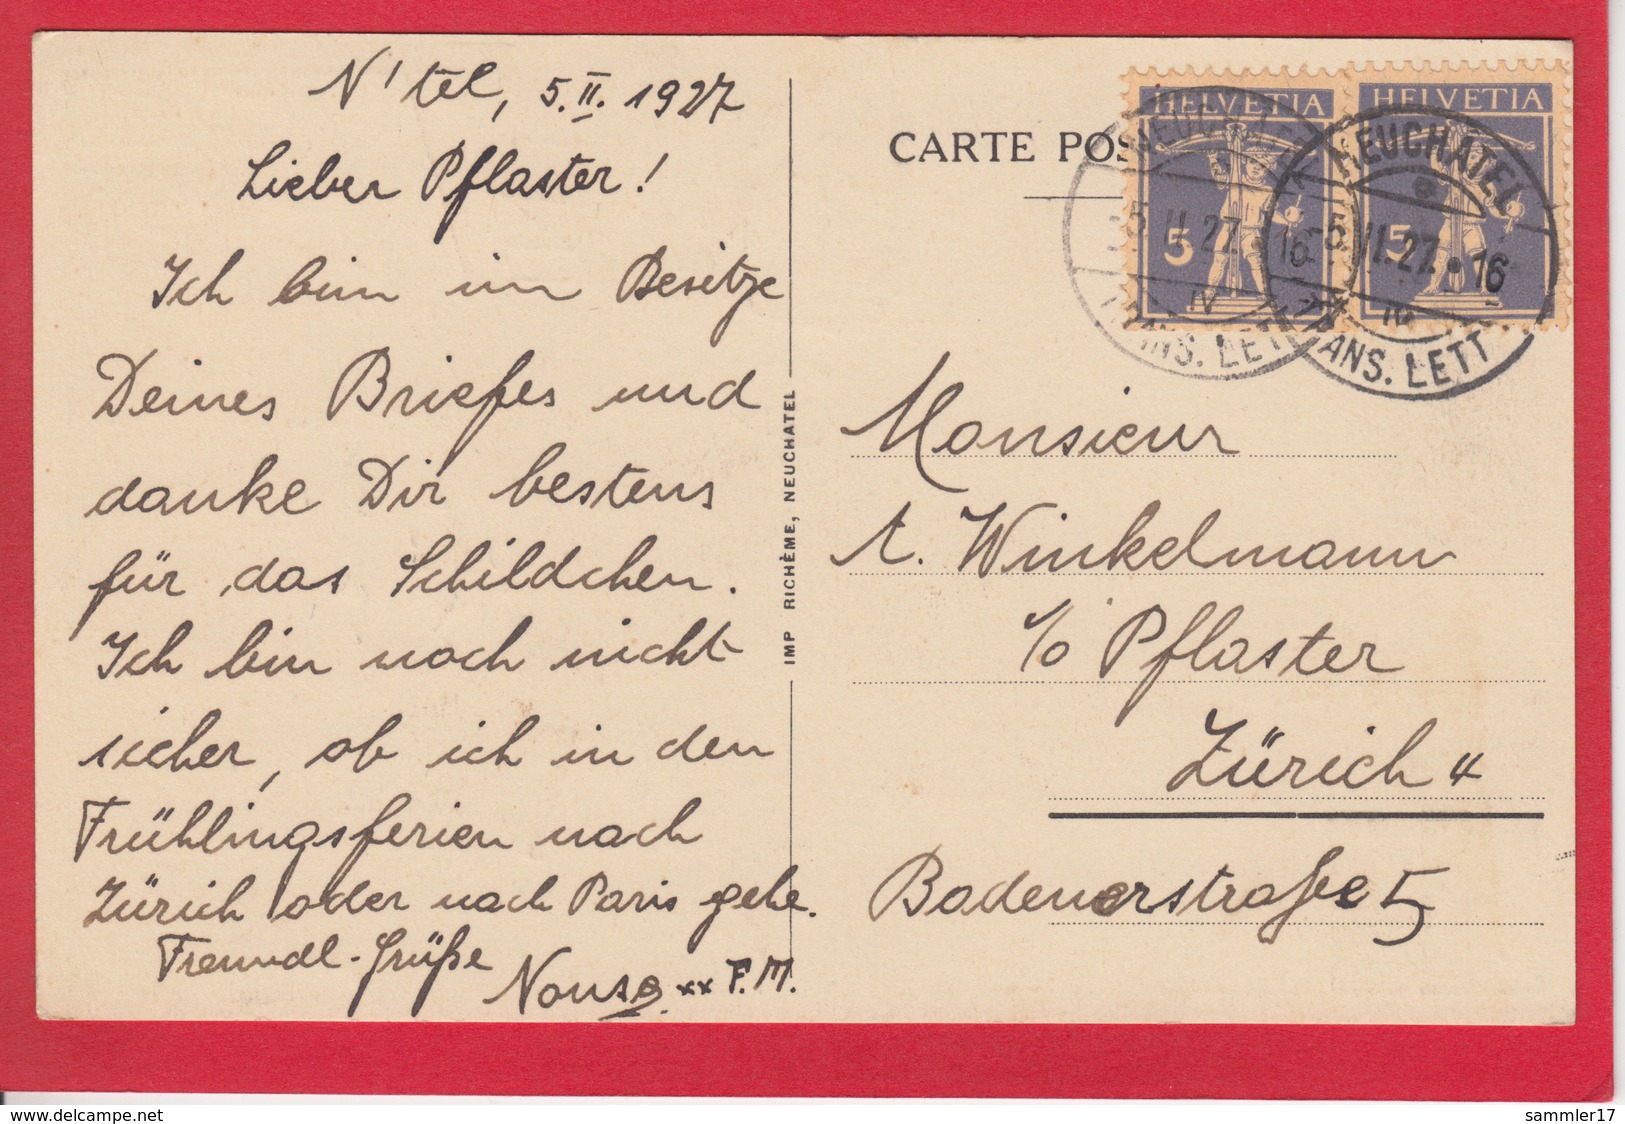 N'tel, 5.II.1927
Lieber Pflaster!
Ich bin im Besitze
Deines Briefes und
danke Dir bestens
für das Schildchen.
Ich bin noch nicht
sicher, ob ich in den
Frühlingsferien nach
Zürich oder nach Paris gehe.
Freundl. Grüße
xx F.M.
IMP RICHÈME, NEUCHATEL
CARTE POS
HELVETIA
5
HELVETIA
5
NEUCHATEL
5.II.27. 16
IV
TRANS. LETT
NEUCHATEL
-5.II.27. 16
IV
TRANS. LETT
Monsieur
A. Winkelmann
c/o Pflaster
Zürich 4
Badenerstraße 5
www.delcampe.net
sammler17